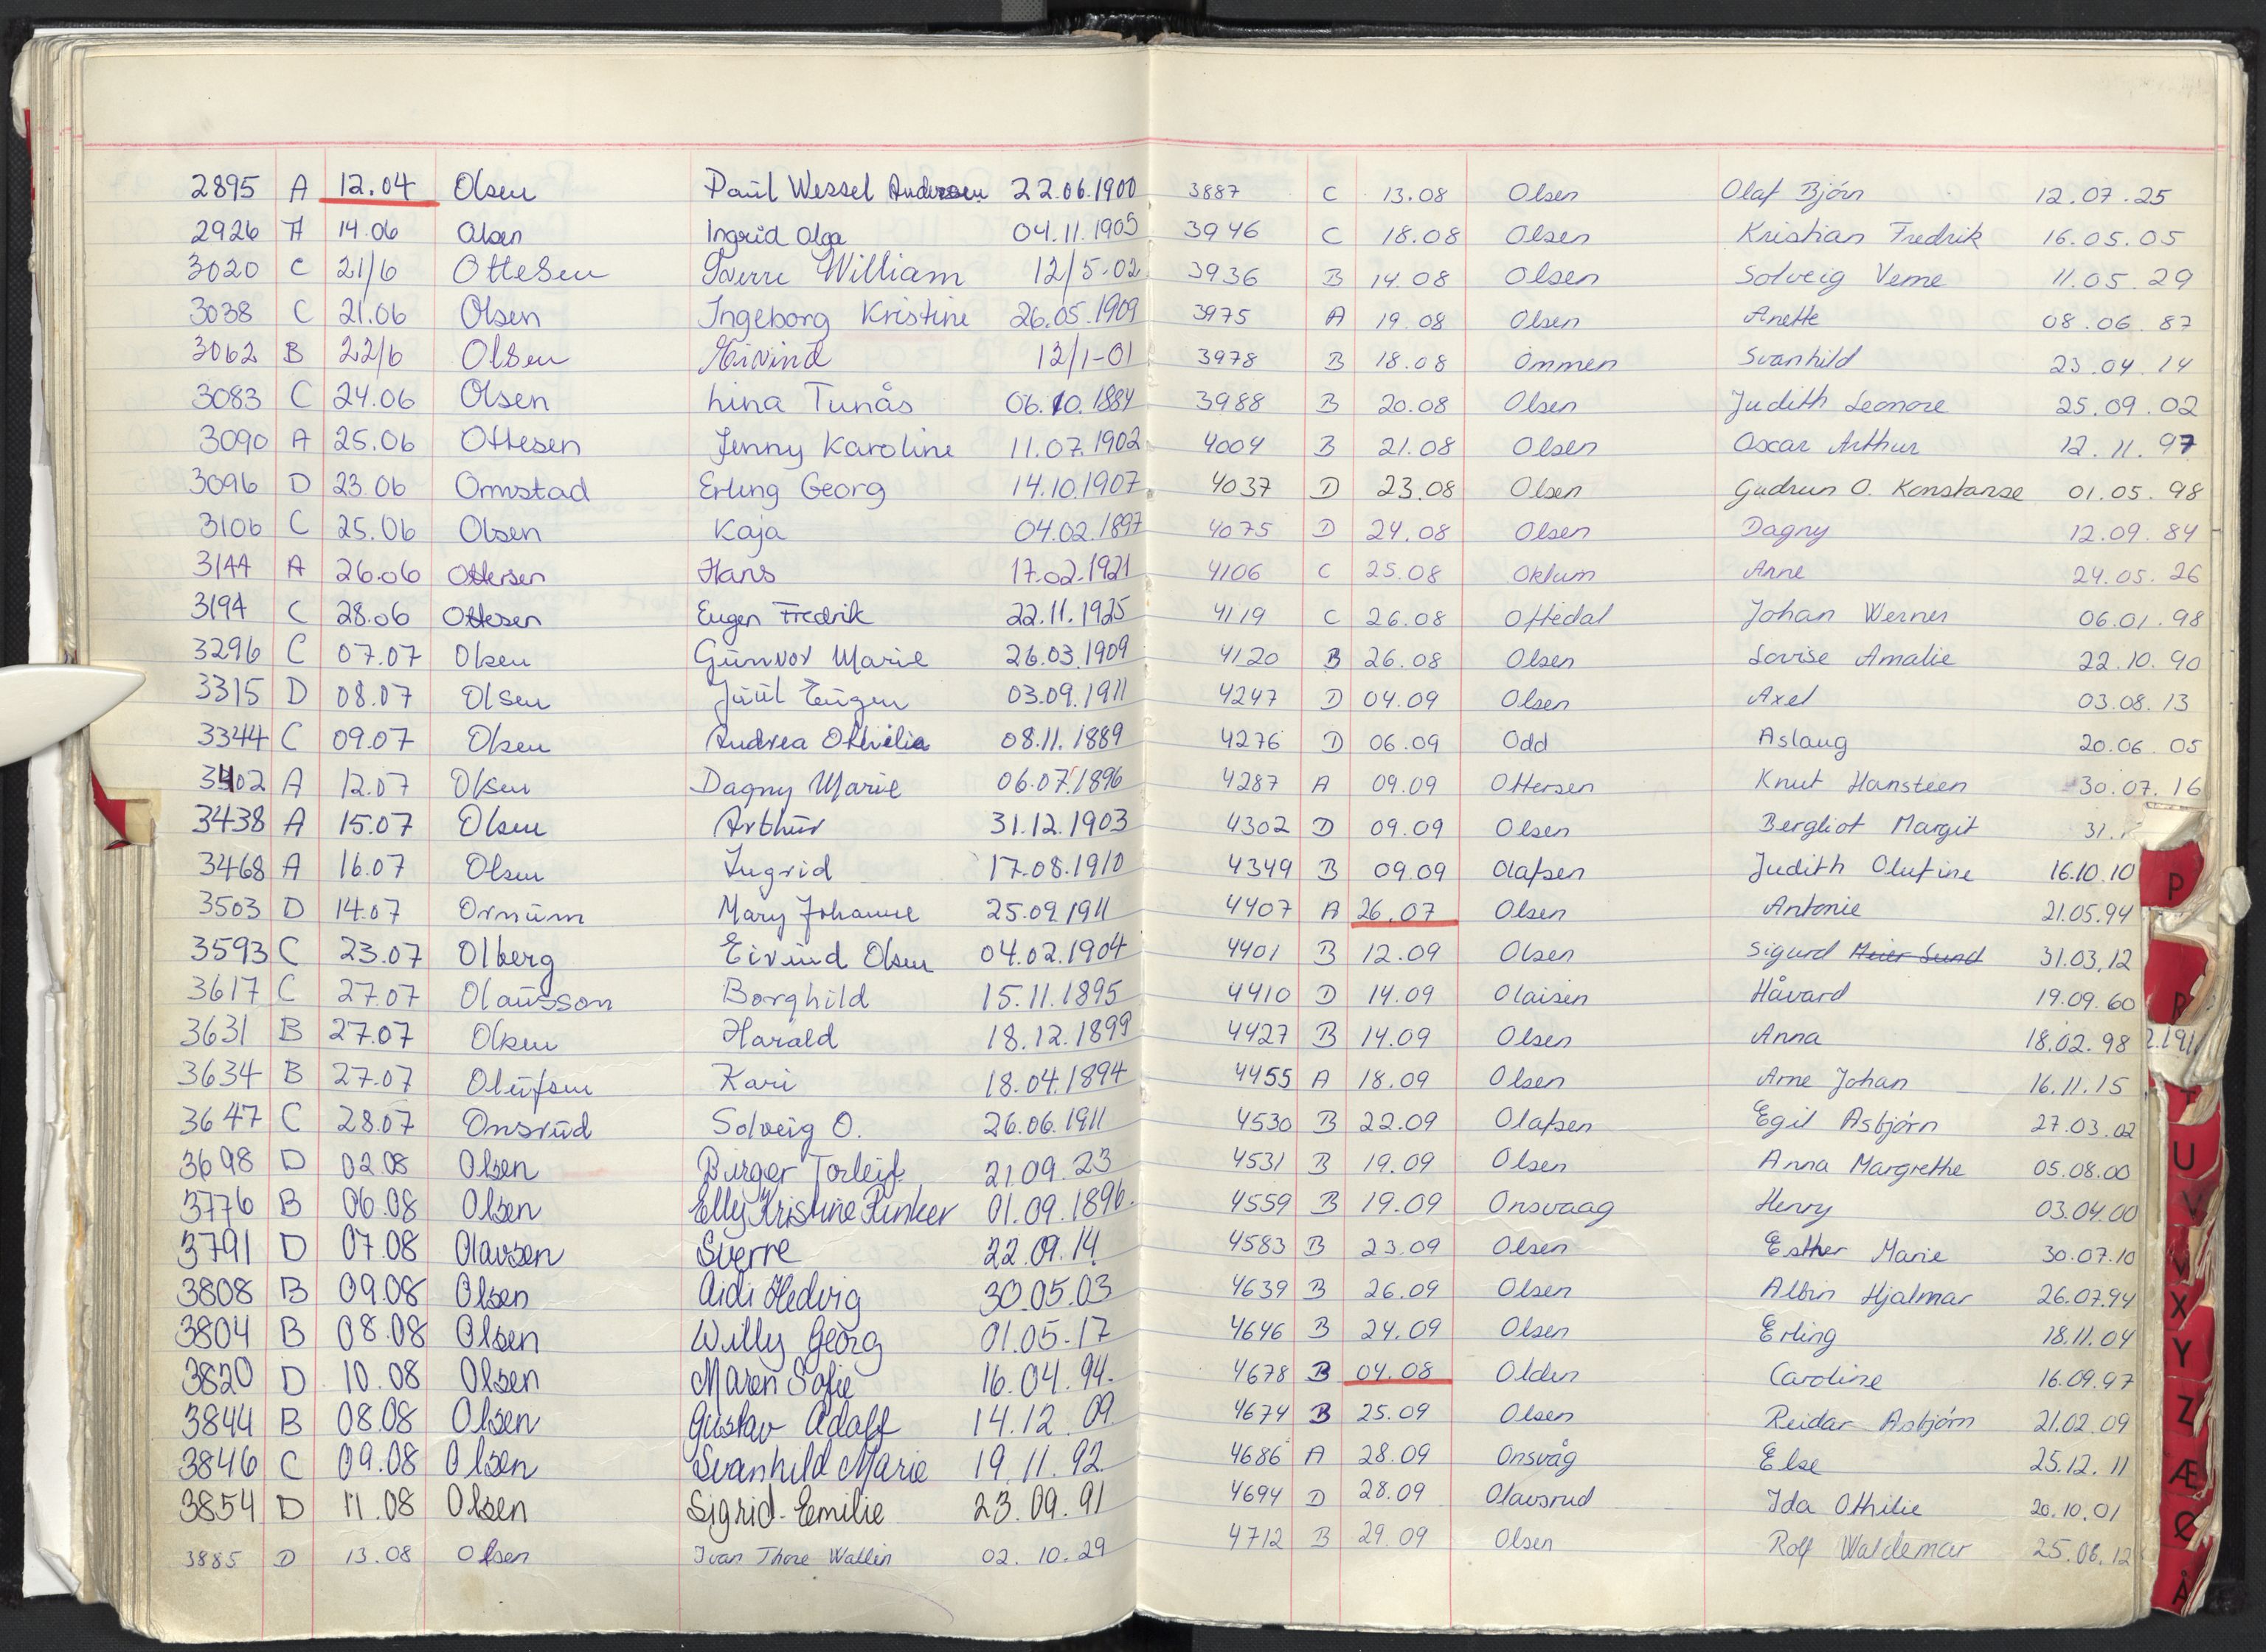 2895 A 12.04 Olsen Paul Wessel Andersen 22.06.1900
2926 A 14.06 Olsen Ingrid Olga 04.11.1905
3020 C 21/6 Ottesen Sverre William 12/5-02
3038 C 21.06 Olsen Ingeborg Kristine 26.05.1909
3062 B 22/6 Olsen Eivind 12/1-01
3083 C 24.06 Olsen Lina Tunås 06.10.1884
3090 A 25.06 Ottesen Jenny Karoline 11.07.1902
3096 D 23.06 Ormstad Erling Georg 14.10.1907
3106 C 25.06 Olsen Kaja 04.02.1897
3144 A 26.06 Ottersen Hans 17.02.1921
3194 C 28.06 Ottesen Eugen Fredrik 22.11.1925
3296 C 07.07 Olsen Gunvor Marie 26.03.1909
3315 D 08.07 Olsen Juul Eugen 03.09.1911
3344 C 09.07 Olsen Andrea Othilia 08.11.1889
3402 A 12.07 Olsen Dagny Marie 06.07.1896
3438 A 15.07 Olsen Arthur 31.12.1903
3468 A 16.07 Olsen Ingrid 17.08.1910
3503 D 14.07 Ornum Mary Johanne 25.09.1911
3593 C 23.07 Olberg Eivind Olsen 04.02.1904
3617 C 27.07 Olausson Borghild 15.11.1895
3631 B 27.07 Olsen Harald 18.12.1899
3634 B 27.07 Olufsen Kari 18.04.1894
3647 C 28.07 Onsrud Solveig O. 26.06.1911
3698 D 02.08 Olsen Birger Torleif 21.09.23
3776 B 06.08 Olsen Elly Kristine Rinker 01.09.1896.
3791 D 07.08 Olavsen Sverre 22.09.14
3808 B 09.08 Olsen Aidi Hedvig 30.05.03
3804 B 08.08 Olsen Willy Georg 01.05-17
3820 D 10.08 Olsen Maren Sofie 16.04.94.
3844 B 08.08 Olsen Gustav Adolf 14.12.09
3846 C 09.08 Olsen Svanhild Marie 19.11.92
3854 D 11.08 Olsen Sigrid Emilie 23.09.91
3885 D 13.08 Olsen Ivan Thore Wallin 02.10.29
3887 C 13.08 Olsen Olaf Bjørn 12.07.25
3946 C 18.08 Olsen Kristian Fredrik 16.05.05
3936 B 14.08 Olsen Solveig Verne 11.05.29
3975 A 19.08 Olsen Anette 08.06.87
3978 B 18.08 Ommen Svanhild 23.04.14
3988 B 20.08 Olsen Judith Leonore 25.09.02
4004 B 21.08 Olsen Oscar Arthur 12.11.97
4037 D 23.08 Olsen Gudrun O. Konstanse 01.05.98
4075 D 24.08 Olsen Dagny 12.09.84
4106 C 25.08 Oklum Anne 24.05.26
4119 C 26.08 Oftedal Johan Werner 06.01.98
4120 B 26.08 Olsen Lovise Amalie 22.10.90
4247 D 04.09 Olsen Axel 03.08.13
4276 D 06.09 Odd Aslaug 20.06.05
4287 A 09.09 Ottersen Knut Hansteen 30.07.16
4302 D 09.09 Olsen Bergliot Margit 31.
4349 B 09.09 Olafsen Judith Olufine 16.10.10
4407 A 26.07 Olsen Antonie 21.05.94
4401 B 12.09 Olsen Sigurd Meier Sund 31.03.12
4410 D 14.09 Olaisen Håvard 19.09.60
4427 B 14.09 Olsen Anna 18.02.98
4455 A 18.09 Olsen Arne Johan 16.11.15
4530 B 22.09 Olafsen Egil Asbjørn 27.03.02
4531 B 19.09 Olsen Anna Margrethe 05.08.00
4559 B 19.09 Onsvaag Henry 03.04.00
4583 B 23.09 Olsen Esther Marie 30.07.10
4639 B 26.09 Olsen Albin Hjalmar 26.07.94
4646 B 24.09 Olsen Erling 18.11.04
4678 B 04.08 Olden Caroline 16.09.97
4674 B 25.09 Olsen Reidar Asbjørn 21.02.09
4686 A 28.09 Onsvåg Else 25.12.11
4694 D 28.09 Olavsrud Ida Othilie 20.10.01
4712 B 29.09 Olsen Rolf Waldemar 25.06.12
P
R
2.191
T
U
V
W
X
Y
Z
Æ
Ø
Å